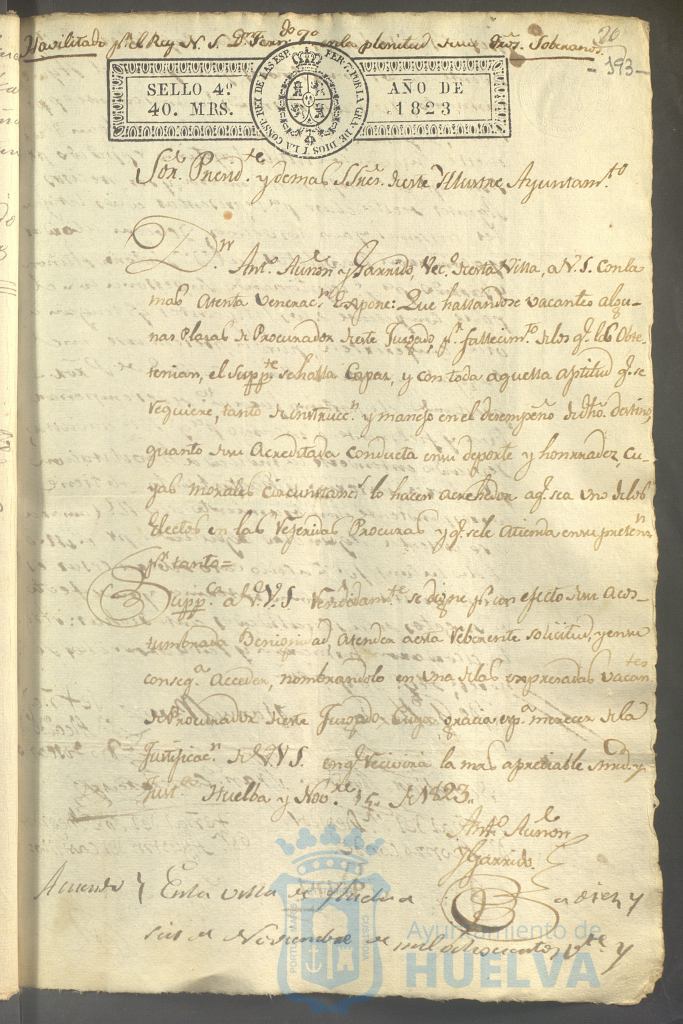 Havilitado pr. el Rey N. S. Dn. Ferndo. 7o. en la plenitud de sus dros. Soberanos.
20
- 193 -
SELLO 4º
40. MRS.
FER. 7. POR LA GRA. DE DIOS Y LA CONST. REY DE LAS ESP.
AÑO DE
1823
Sor. Presidte. y demas SSres. de este Yllustre Ayuntamto.
Dn.
Anto. Auñon y Garrido, Vecо. de esta Villa, a V. S. con la
mas atenta veneracn. Expone: Que hallandose vacantes algu-
nas Plazas de Procurador de este Juzgado, pr. fallecimto. de los qe. las Obte-
tenian, el Suppte. se halla Capaz, y con toda aquella aptitud qe. se
requiere, tanto de instruccn. y manejo en el desempeño de dho. destino,
quanto de su Acreditada conducta en su deporte y honrradez, Cu-
yas morales circunstancs. lo hacen acrehedor a qe. sea uno de los
Electos en las referidas Procuras y qe. se le Atienda en su pretensn.
pr. tanto =
Suppca. a V. S. rendidamte. se digne pr. un efecto de su acos-
tumbrada Benignidad, atender a esta reberente solicitud, y en su
conseqa. Acceder, nombrandolo en una de las expresadas vacantes
de Procurador de este Juzgado Cuya gracia espa. merecer de la
Justificacn. de V. S. en qe. recivirá la mas apreciable mrd. y
Justa. Huelba y Nobre. 15. de 1823.
Anto. Auñon
y Garrido
Acuerdo } En la villa de Huelva a diez y
seis de Noviembre de mil ochocientos vte. y
PORTUS MARIS ET TERRAE CUSTODIA
Ayuntamiento de
HUELVA